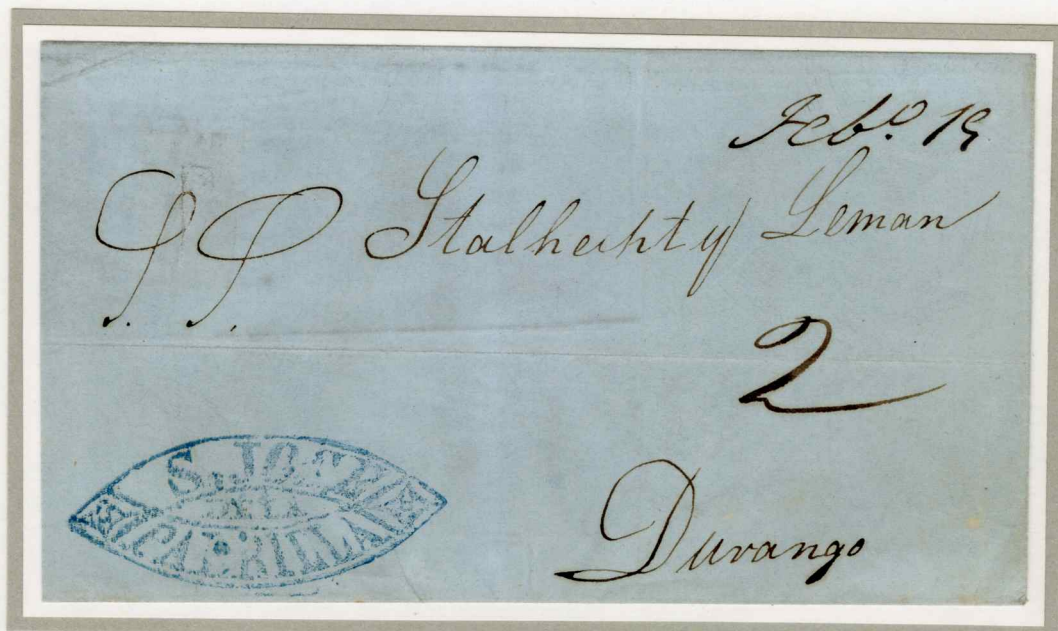 Feb.º 19
SS Stalhecht y Leman
2
Durango
S. JOSE
DE LA
PARRILLA